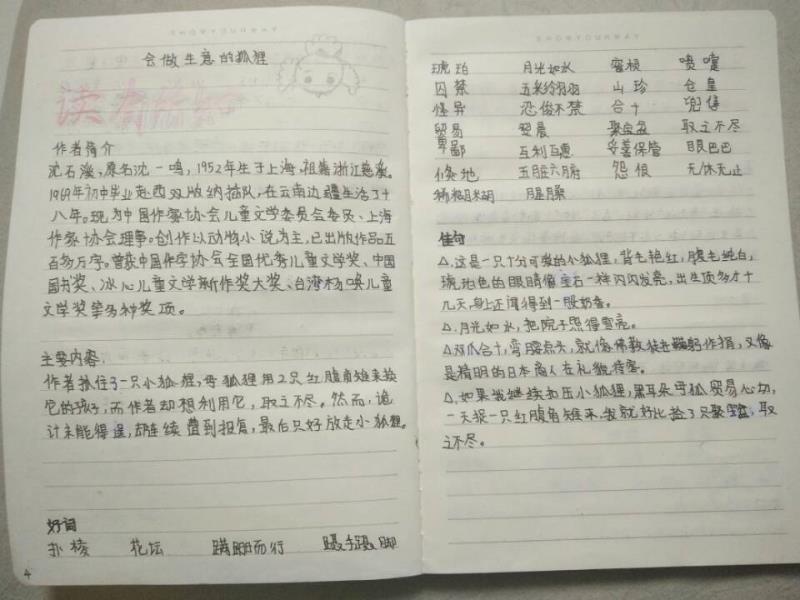 会做生意的狐狸
读有所知
作者简介
沈石溪,原名沈一鸣,1952年生于上海,祖籍浙江慈溪。
1969年初中毕业赴西双版纳插队,在云南边疆生活了十
八年。现为中国作家协会儿童文学委员会委员、上海
作家协会理事。创作以动物小说为主,已出版作品五
百多万字。曾获中国作家协会全国优秀儿童文学奖、中国
图书奖、冰心儿童文学新作奖大奖、台湾杨唤儿童
文学奖等多种奖项。
主要内容:
作者抓住了一只小狐狸,母狐狸用2只红腹角雉来换
它的孩子,而作者却想利用它,取之不尽。然而,诡
计未能得逞,却连续遭到报复,最后只好放走小狐狸。
好词
扑棱 花坛 蹒跚而行 蹑手蹑脚
4
琥珀 月光如水 窗棂 喷嚏
囚禁 五彩纷羽 山珍 仓皇
怪异 忍俊不禁 合十
贸易 翌晨 聚宝盆 取之不尽
卑鄙 互利互惠 妥善保管 眼巴巴
倏地 五脏六腑 怨恨 无休无止
腥臊
佳句
△.这是一只十分可爱的小狐狸,背毛艳红,腹毛纯白,
琥珀色的眼睛像宝石一样闪闪发亮,出生顶多才十
几天,身上还闻得到一股奶香。
△.月光如水,把院子照得雪亮。
△.双爪合十,弯腰点头,就像佛教徒在鞠躬作揖,又像
是精明的日本商人在礼貌待客。
△.如果我继续扣压小狐狸,黑耳朵母狐贸易心切,
一天换一只红腹角雉来,我就好比捡了只聚宝盆,取
之不尽。